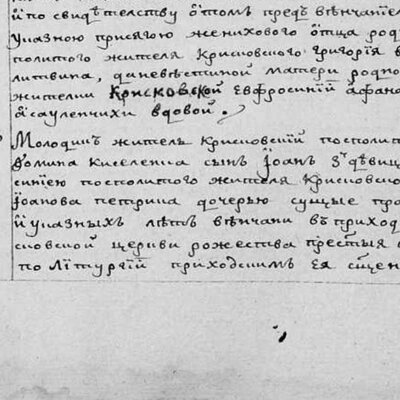 й по свидѣтелству о томъ предъ вѣнчаніе
указною присягою женихового отца род
политого жителя Крисковского григорія
литвина, а невѣстиной матери родно
жителки Крисковской Евфросинїй афана
асауленчихи вдовой.
Молодикъ житель Крисковскїй посполит
кисленка сынъ Іоанъ з дѣвиц
сиїею посполитого жителя Крисковско
Іоанова петрина дочерью сущые пра
й указныхъ лѣтъ вѣнчани въ приход
сковской церкви рожества престыя
по лїтургїй приходскимъ ея сщен